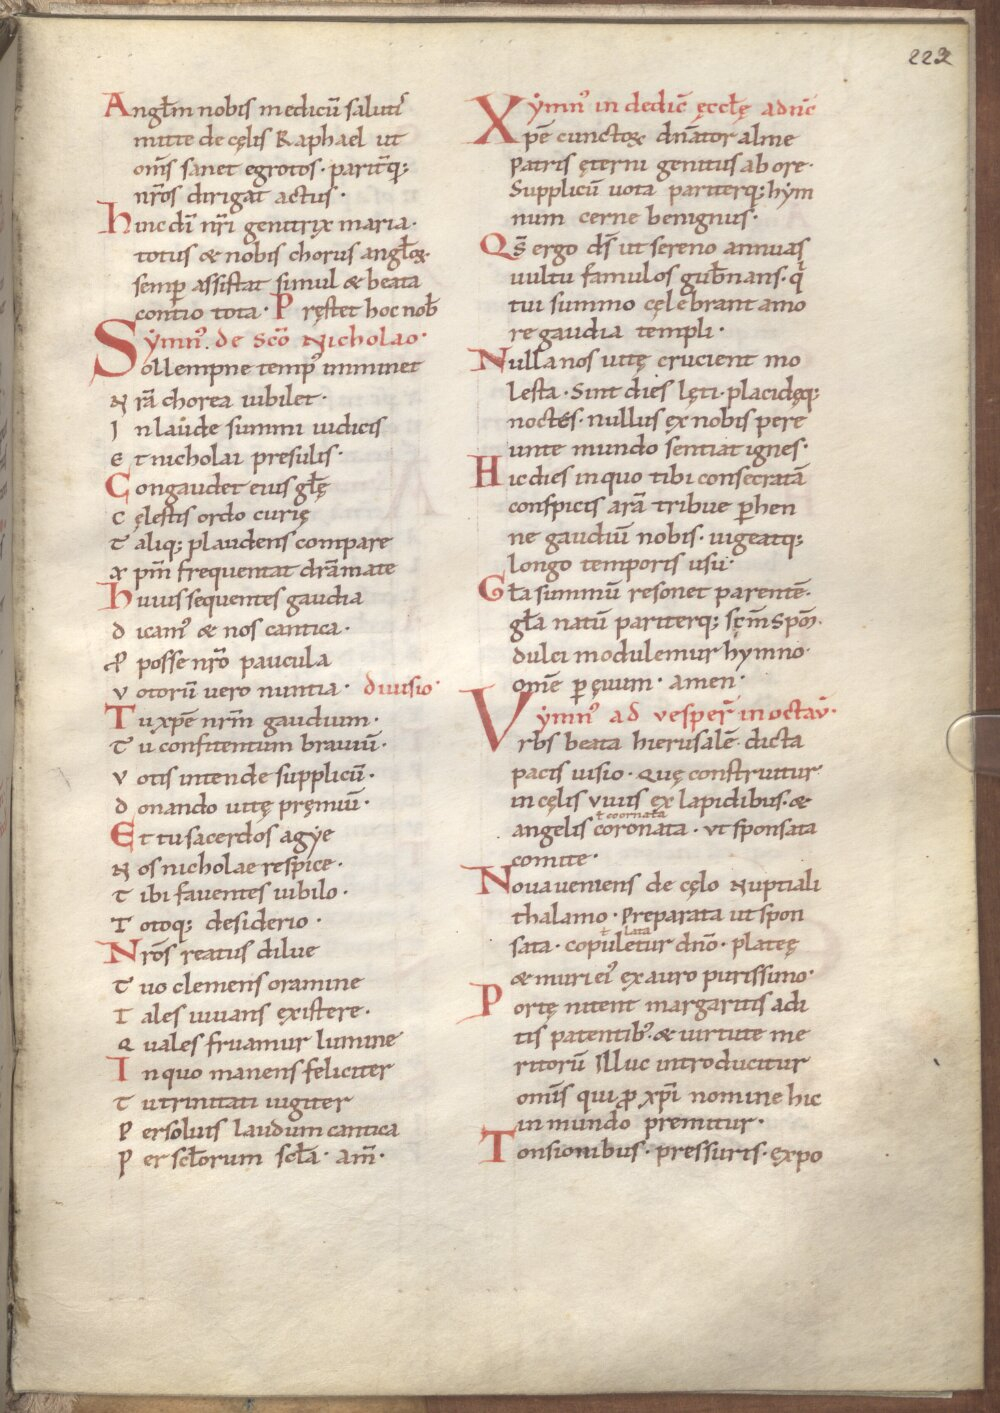 223
Angłm nobis medicū saluti᷒
mitte de cęlis Raphael ut
om̄s sanet egrotos · parit̄q;
nr̄os dirigat actus ·
hinc dī nr̄i genitrix maria ·
totus & nobis chorus angłoꝝ ·
semp̄ assistat simul & beata
contio tota · Pręstet hoc nob̄
ẏmn᷒ · de sc̄o Nicholao ·
Sollempne temp᷒ imminet
Nr̄a chorea iubilet ·
In laude summi iudicis
Et nicholai presulis ·
Congaudet eius gł̄ę
Cęlestis ordo curię
Taliq; plaudens compare
Xpm̄ frequentat drāmate
huius sequentes gaudia
dicam᷒ & nos cantica ·
ꝓ posse nr̄o paucula
votorū vero nuntia · diuisio ·
Tu xp̄e nrm̄ gaudium ·
Tu confitentum brauiū ·
votis intende supplicū ·
donando uitę pręmiū ·
Et tu sacerdos agye
Nos nicholae respice ·
Tibi fauentes iubilo ·
Totoq; desiderio ·
Nr̄os reatus dilue
Tuo clemens oramine
Tales iuuans existere ·
Quales fruamur lumine
In quo manens feliciter
Tu trinitati iugiter
Persoluis laudum cantica
Per scłorum scł̄a · am̄ ·
ẏmn᷒ in dedic̄ ęccłę ad nc̄
Xpē cunctoꝝ dn̄ator alme
patris ęterni genitus ab ore ·
Supplicū uota pariterq; hym
num cerne benignus ·
Qs̄ ergo ds̄ ut sereno annuas
uultu famulos gub̄nans · q̄
tui summo celebrant amo
re gaudia templi ·
Nulla nos uitę crucient mo
lesta · Sint dies lęti · placidęq;
noctes · nullus ex nobis pere
unte mundo sentiat ignes ·
Hic dies in quo tibi consecratā
conspicis arā tribue ꝑhen
ne gaudiū nobis · uigeatq;
longo temporis usu ·
Gł̄a summū resonet parentē ·
gł̄a natū pariterq; scm̄ spm̄ ·
dulci modulemur hymno ·
omē ꝑ ęuum · amen ·
ẏmn᷒ ad vesper̄ in octav̄ ·
Vrbs beata hierusalē · dicta
pacis uisio · Quę construitur
in cęlis vivis ex lapidibus · &
ł coornata
angelis coronata · vt sponsata
comite ·
Noua veniens de cęlo Nuptiali
thalamo · Preparata ut spon
ł lata
sata · copuletur dn̄o · plateę
& muri ei᷒ ex auro purissimo ·
Portę nitent margaritis adi
tis patentib᷒ · & uirtute me
ritorū Illuc introducitur
om̄is qui ꝓ xp̄i nomine hic
in mundo premitur ·
Tonsionibus · pressuris · expo